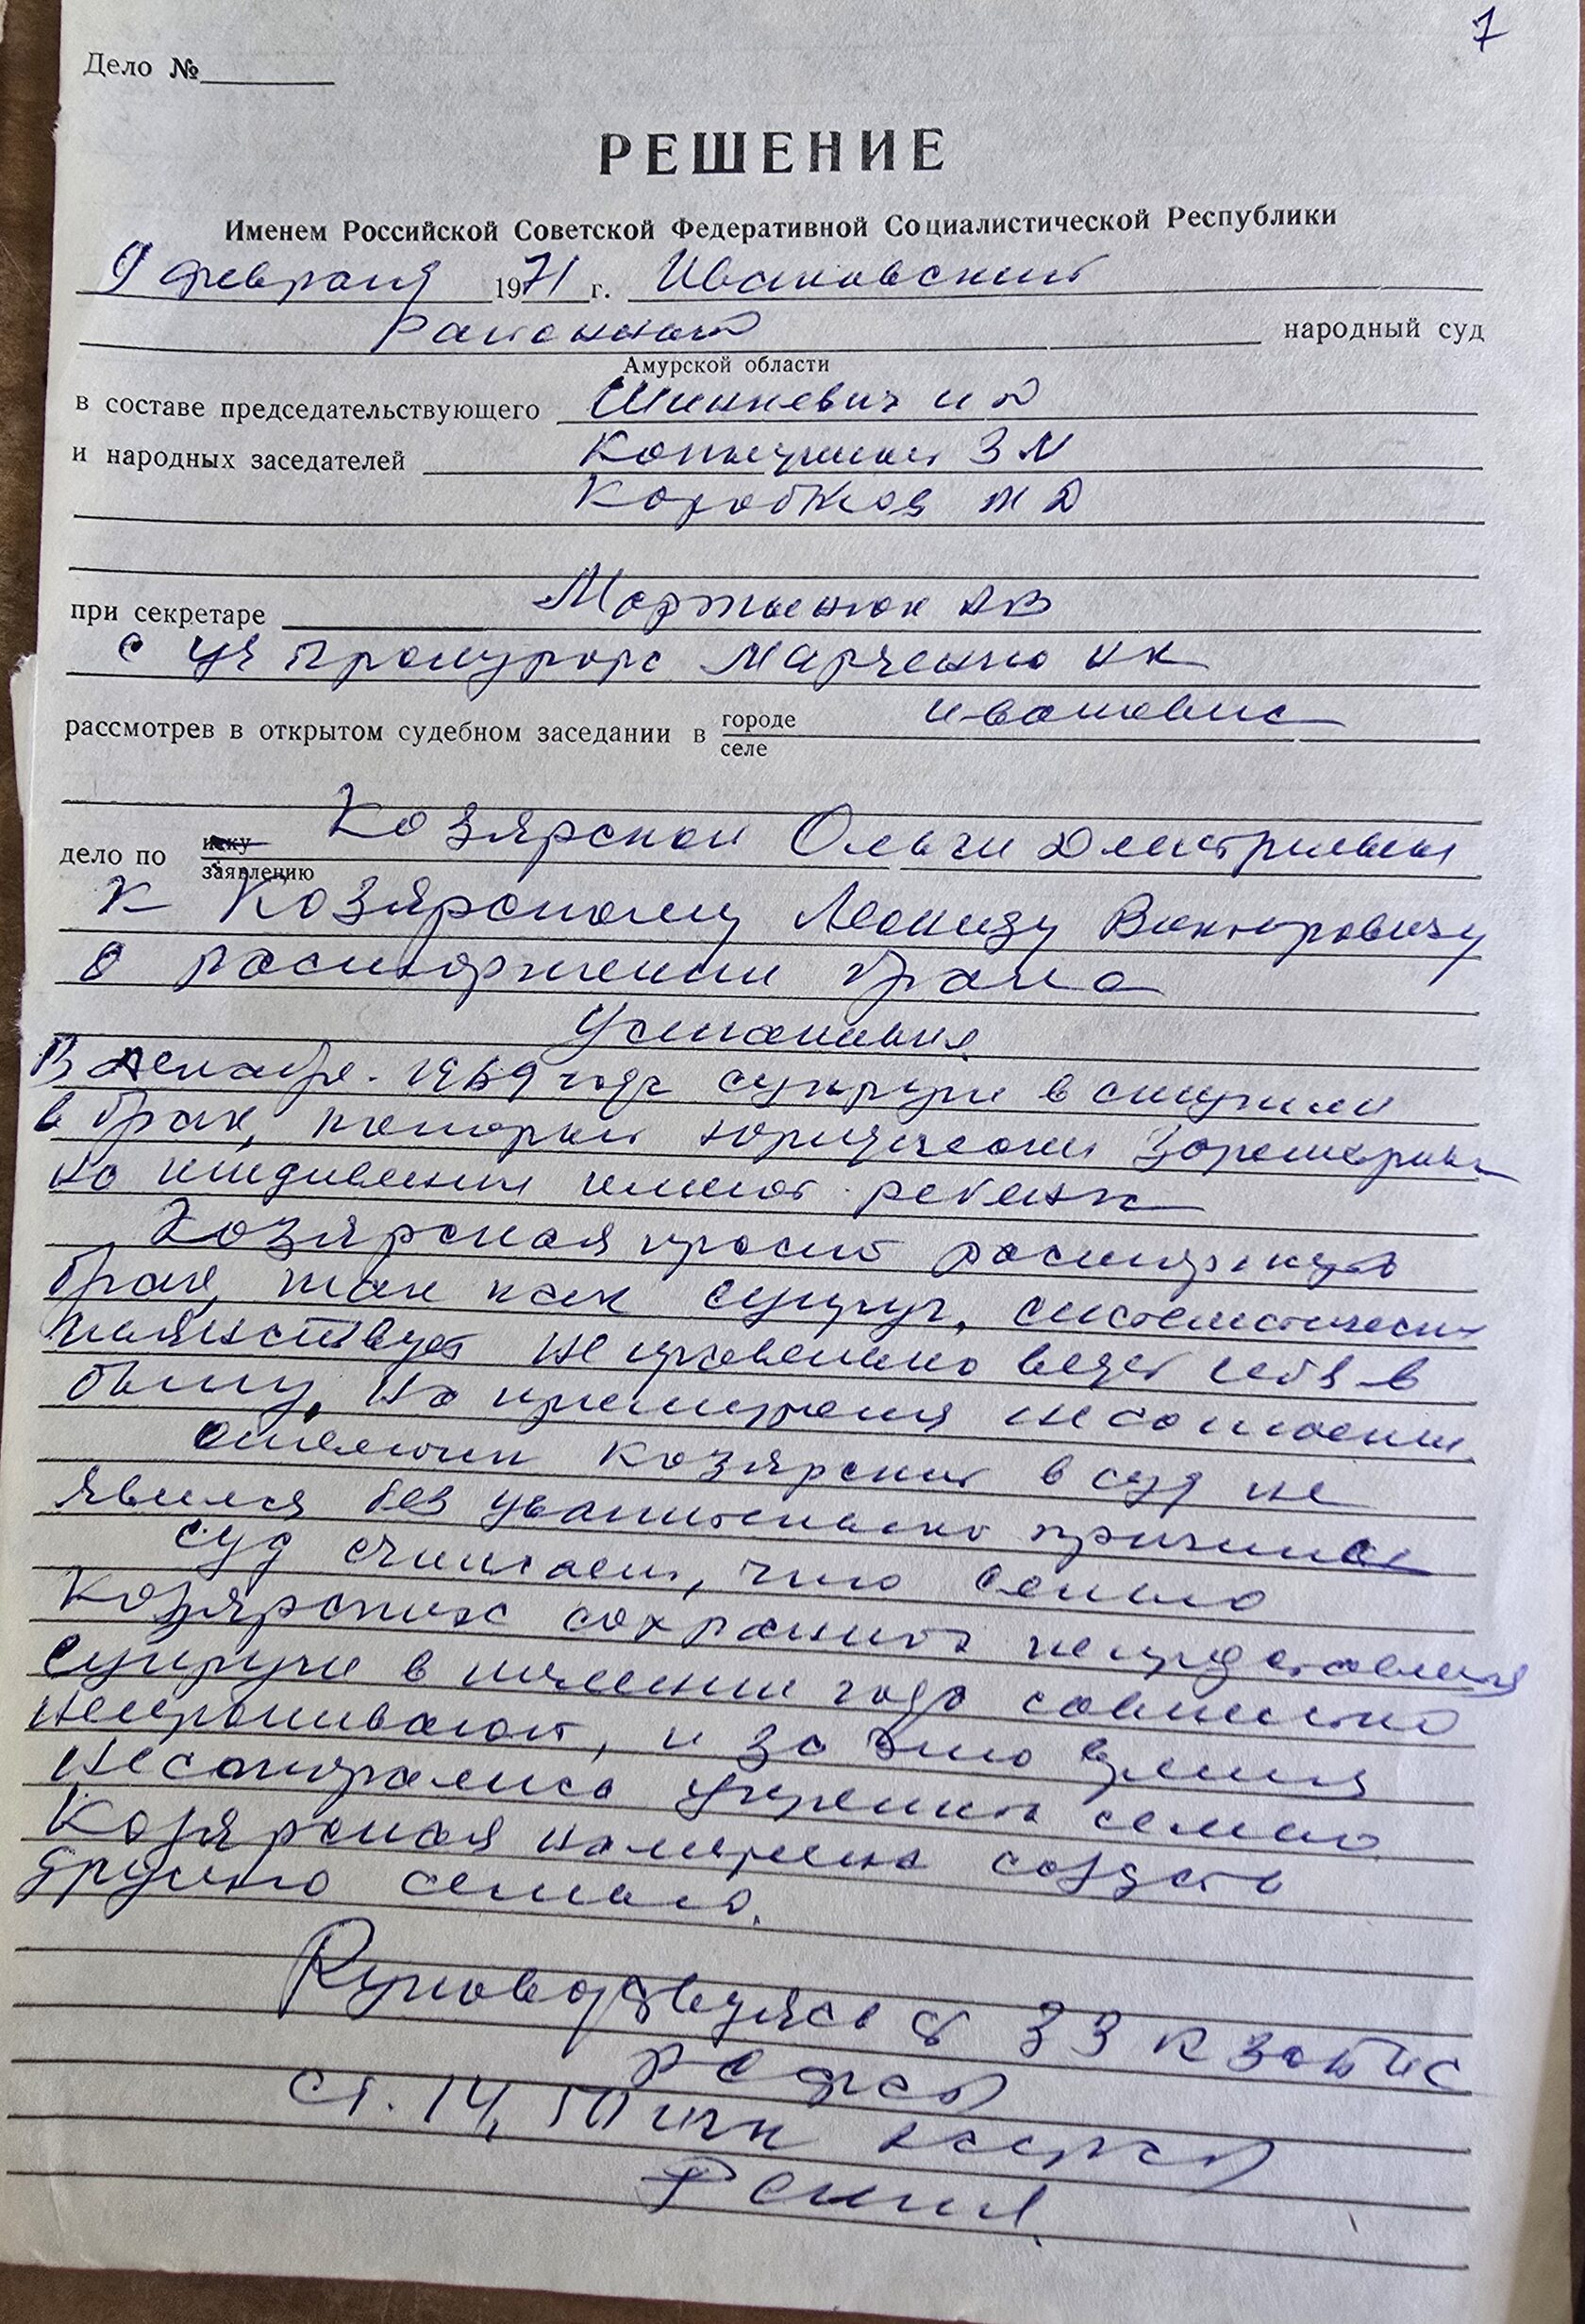 7
Дело №
РЕШЕНИЕ
Именем Российской Советской Федеративной Социалистической Республики
9 февраля 1971 г. Ивановский
районный народный суд
Амурской области
в составе председательствующего Шинкевич И Д
и народных заседателей З М
Коробков М Д
при секретаре Мартынюк А В
с уч прокурора Марченко Н К
рассмотрев в открытом судебном заседании в городе Ивановке
селе
иску
дело по Козярской Ольги Дмитриевны
заявлению
к Козярскому Леониду Викторовичу
о расторжении брака
Установил
В декабре 1969 года супруги вступили
в брак, который юридически зарегистриров
на иждивении имеют ребенка
Козярская просит расторгнуть
брак, так как супруг, систематически
пьянствует не правильно ведет себя в
быту, на примирения не согласен
ответчик Козярский в суд не
явился без уважительной причины
суд считает, что семью
Козярских сохранить не представляется
супруги в течении года совместно
не проживают, и за это время
не старались укрепить семью
Козярская намерена создать
другую семью.
Руководствуясь ст 33 К ЗОБ и С
РСФСР
ст. 14, 50 ГПК РСФСР
Решил